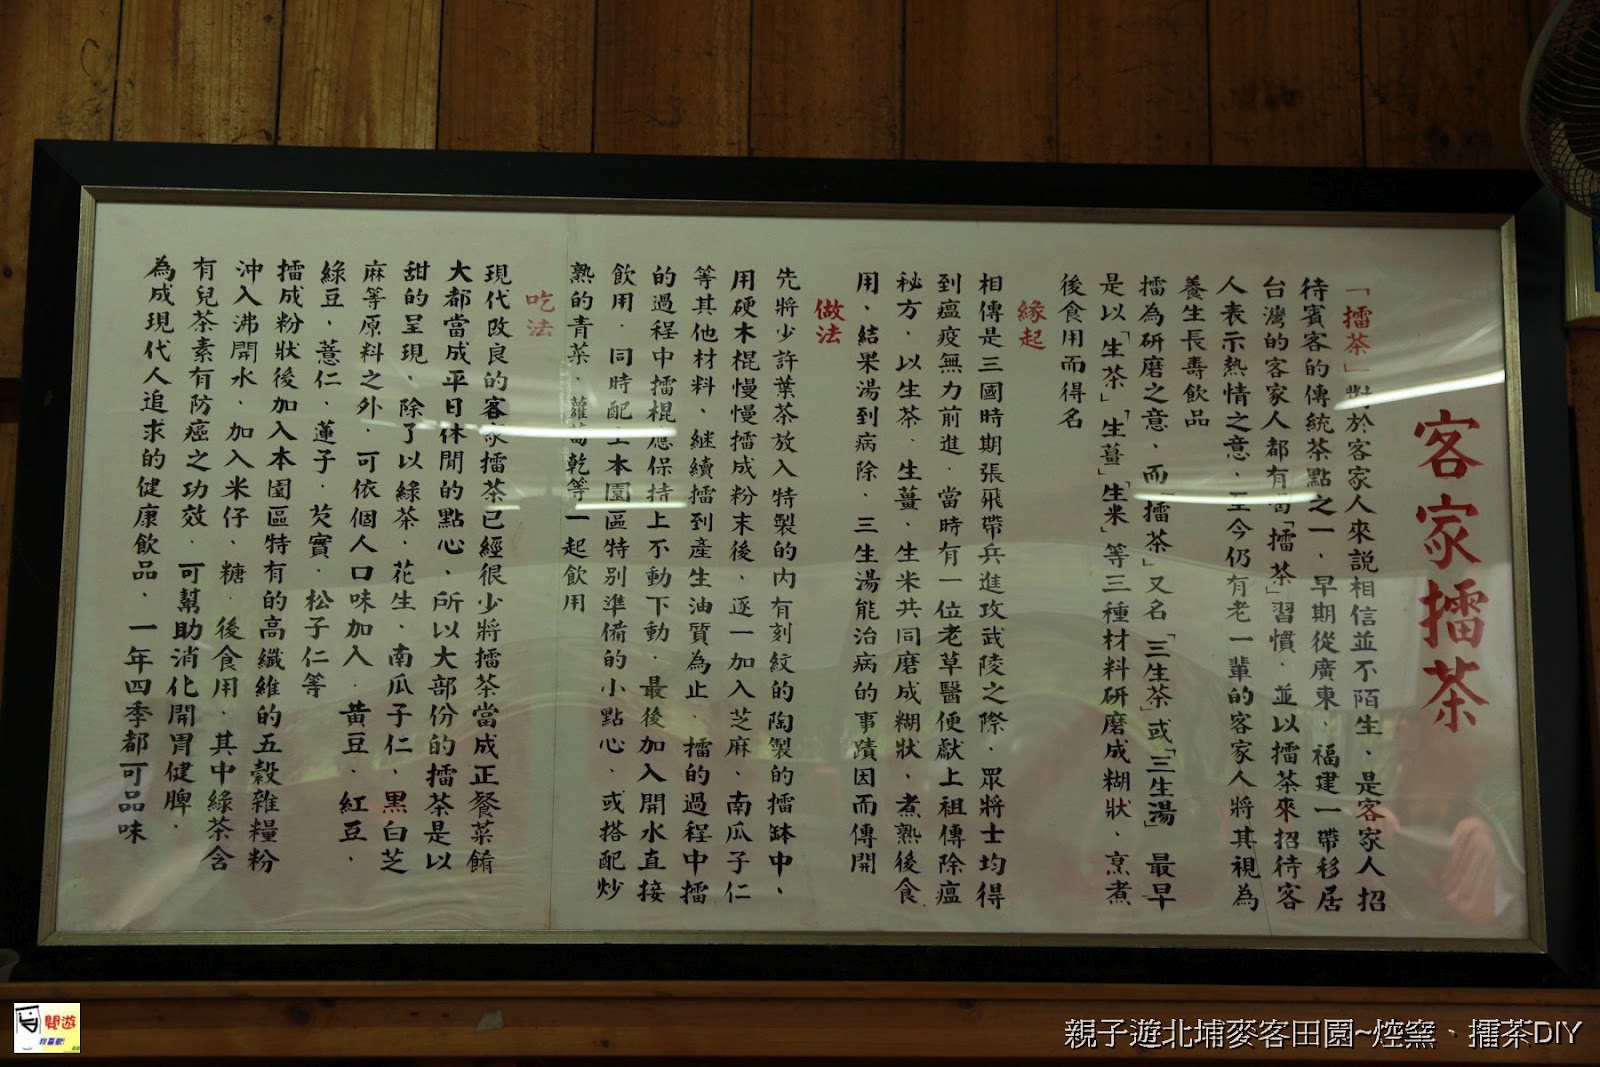 客家擂茶
「擂茶」對於客家人來說相信並不陌生．是客家人招
待賓客的傳統茶點之一．早期從廣東．福建一帶移居
台灣的客家人都有喝「擂茶」習慣．並以擂茶來招待客
人表示熱情之意．至今仍有老一輩的客家人將其視為
養生長壽飲品
擂為研磨之意．而「擂茶」又名「三生茶」或「三生湯」最早
是以「生茶」「生薑」「生米」等三種材料研磨成糊狀．烹煮
後食用而得名
緣起
相傳是三國時期張飛帶兵進攻武陵之際．眾將士均得
到瘟疫無力前進．當時有一位老草醫便獻上祖傳除瘟
秘方．以生茶．生薑．生米共同磨成糊狀．煮熟後食
用．結果湯到病除．三生湯能治病的事蹟因而傳開
做法
先將少許葉茶放入特製的內有刻紋的陶製的擂缽中．
用硬木棍慢慢擂成粉末後．逐一加入芝麻．南瓜子仁
等其他材料．継續擂到產生油質為止．擂的過程中擂
的過程中擂棍應保持上不動下動．最後加入開水直接
飲用．同時配上本園區特別準備的小點心．或搭配炒
熟的青菜．蘿蔔乾等一起飲用
吃法
現代改良的客家擂茶已經很少將擂茶當成正餐菜餚
大都當成平日休閒的點心．所以大部份的擂茶是以
甜的呈現．除了以綠茶．花生．南瓜子仁．黑白芝
麻等原料之外．可依個人口味加入．黃豆．紅豆．
綠豆．薏仁．蓮子．芡實．松子仁等
擂成粉狀後加入本園區特有的高纖維的五穀雜糧粉
沖入沸開水．加入米仔．糖．後食用．其中綠茶含
有兒茶素有防癌之功效．可幫助消化開胃健脾．
為成現代人追求的健康飲品．一年四季都可品味
閒遊
我喜歡!
親子遊北埔麥客田園~焢窯、擂茶DIY